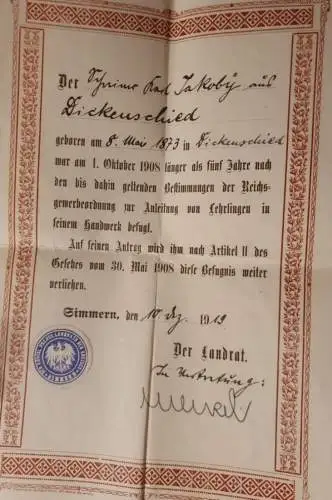 Der Schreiner Karl Jakoby aus
Dickenschied
geboren am 8. Mai 1873 in Dickenschied
war am 1. Oktober 1908 länger als fünf Jahre nach
den bis dahin geltenden Bestimmungen der Reichs-
gewerbeordnung zur Anleitung von Lehrlingen in
seinem Handwerk befugt.
Auf seinen Antrag wird ihm nach Artikel II des
Gesetzes vom 30. Mai 1908 diese Befugnis weiter
verliehen.
Simmern, den 10 Dez. 1919
Der Landrat.
In Vertretung: